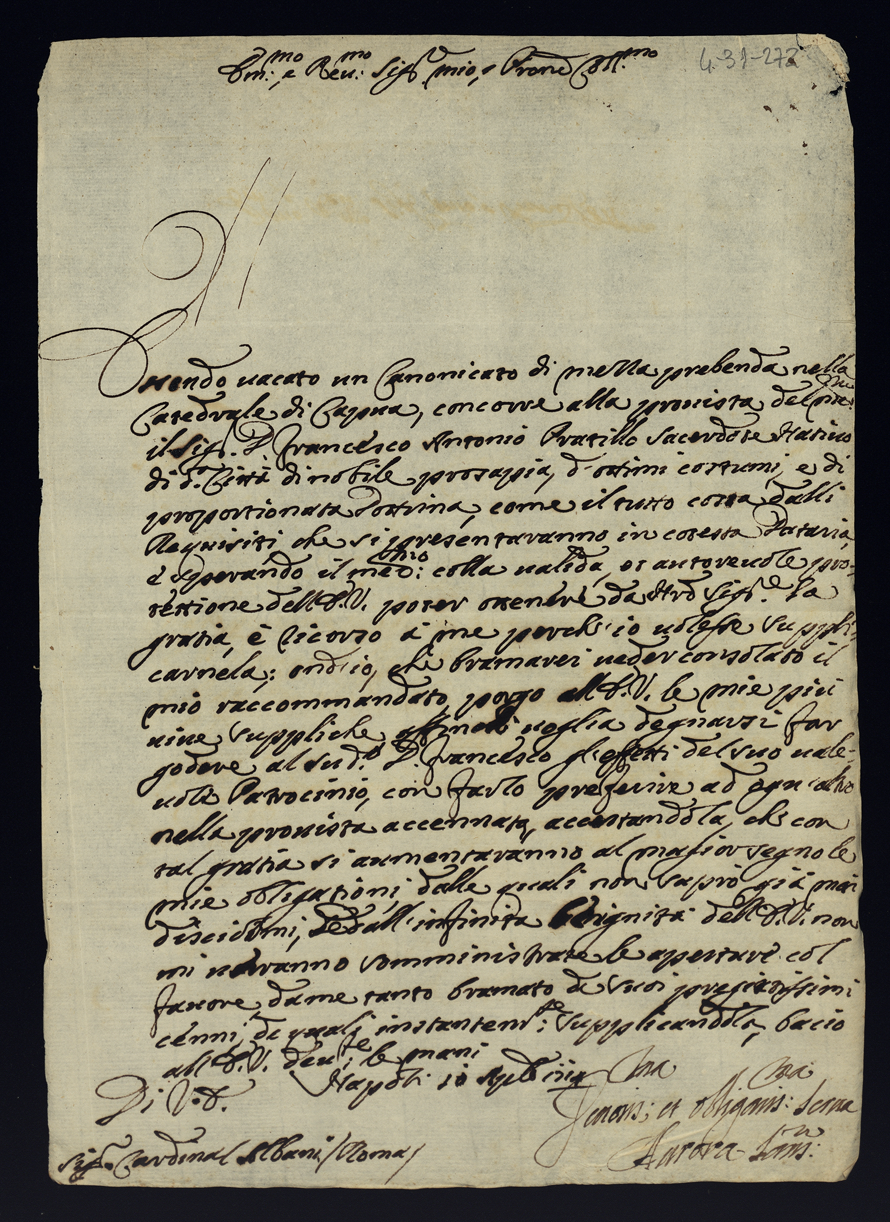 Em:mo e Reu:mo Sig.r mio, e Prone Coll.mo
4-31-272
Essendo uacato un Canonicato di mezza prebenda nella
Catedrale di Capua, concorre alla prouista del
il Sig.r D. Francesco Antonio Pratillo Sacerdote Natiuo
di d.a Città di nobile prosapia, d'ottimi costumi, e di
proportionata Dottrina, come il tutto costa dalli
Requisiti che si presentaranno in cotesta Dataria,
e sperando il med:mo colla ualida, et autoreuole pro-
tettione dell'E.V. poter ottenere da Sig.re la
gratia, è ricorso à me perche io uolesse suppli-
carnela; ond'io, che bramarei ueder consolato il
mio raccommandato, porgo all'E.V. le mie più
uiue suppliche affinche uoglia degnarsi far
godere al sud.o D. Francesco gl'effetti del suo uale-
uole Patrocinio, con farlo preferire ad ogn'altro
nella prouista accennata, accertandola, che con
tal gratia si aumentaranno al maggior segno le
mie obligationi, dalle quali non saprò già mai
disciormi, e dall'infinita benignità dell'E.V. non
mi uerranno somministrate le aperture col
fauore da me tanto bramato di suoi pregiatissimi
cenni, de quali instantem.te supplicandola, bacio
all'E.V. deu:te le mani
Napoli 10
Di V.E.
Deuotis: et obligatis: Serua
Aurora San:
Sig.r Cardinal Albani / Roma /